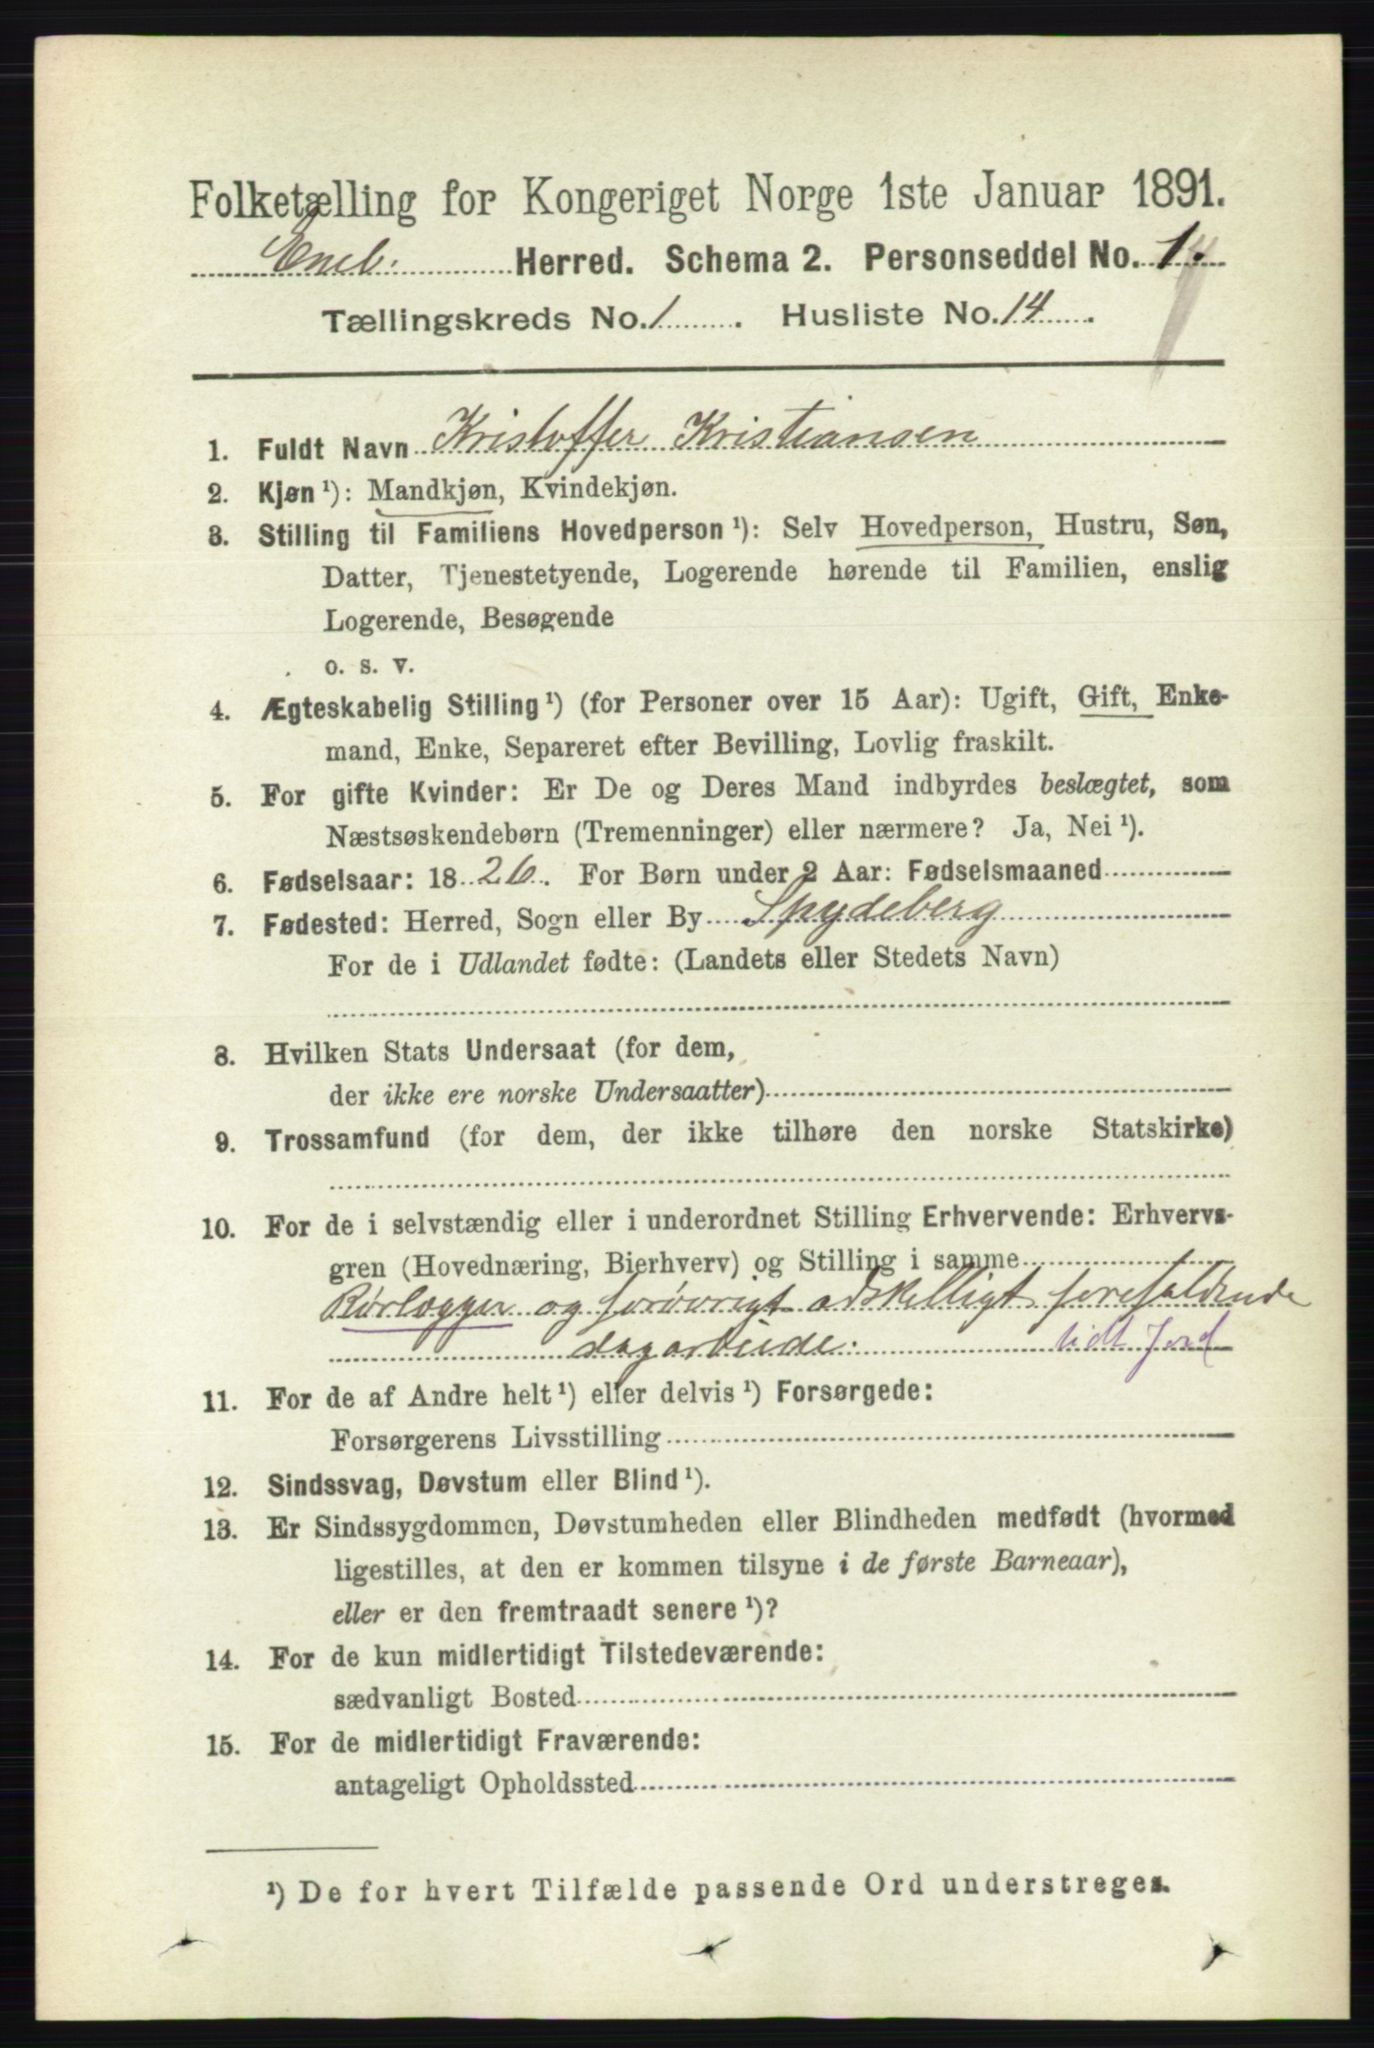 Folketælling for Kongeriget Norge 1ste Januar 1891.
Eneb. Herred. Schema 2. Personseddel No. 1.
Tællingskreds No. 1. Husliste No. 14.
1. Fuldt Navn Kristoffer Kristiansen
2. Kjøn ¹): Mandkjøn, Kvindekjøn.
3. Stilling til Familiens Hovedperson ¹): Selv Hovedperson, Hustru, Søn,
Datter, Tjenestetyende, Logerende hørende til Familien, enslig
Logerende, Besøgende
o. s. v.
4. Ægteskabelig Stilling ¹) (for Personer over 15 Aar): Ugift, Gift, Enke-
mand, Enke, Separeret efter Bevilling, Lovlig fraskilt.
5. For gifte Kvinder: Er De og Deres Mand indbyrdes beslægtet, som
Næstsøskendebørn (Tremenninger) eller nærmere? Ja, Nei ¹).
6. Fødselsaar: 18 26. For Børn under 2 Aar: Fødselsmaaned
7. Fødested: Herred, Sogn eller By Spydeberg
For de i Udlandet fødte: (Landets eller Stedets Navn)
8. Hvilken Stats Undersaat (for dem,
der ikke ere norske Undersaatter)
9. Trossamfund (for dem, der ikke tilhøre den norske Statskirke)
10. For de i selvstændig eller i underordnet Stilling Erhvervende: Erhvervs-
gren (Hovednæring, Bierhverv) og Stilling i samme
Rørlægger og forøvrigt adskelligt forefaldende
dagarbeide. lidt Jord
11. For de af Andre helt ¹) eller delvis ¹) Forsørgede:
Forsørgerens Livsstilling
12. Sindssvag, Døvstum eller Blind ¹).
13. Er Sindssygdommen, Døvstumheden eller Blindheden medfødt (hvormed
ligestilles, at den er kommen tilsyne i de første Barneaar),
eller er den fremtraadt senere ¹)?
14. For de kun midlertidigt Tilstedeværende:
sædvanligt Bosted
15. For de midlertidigt Fraværende:
antageligt Opholdssted
¹) De for hvert Tilfælde passende Ord understreges.